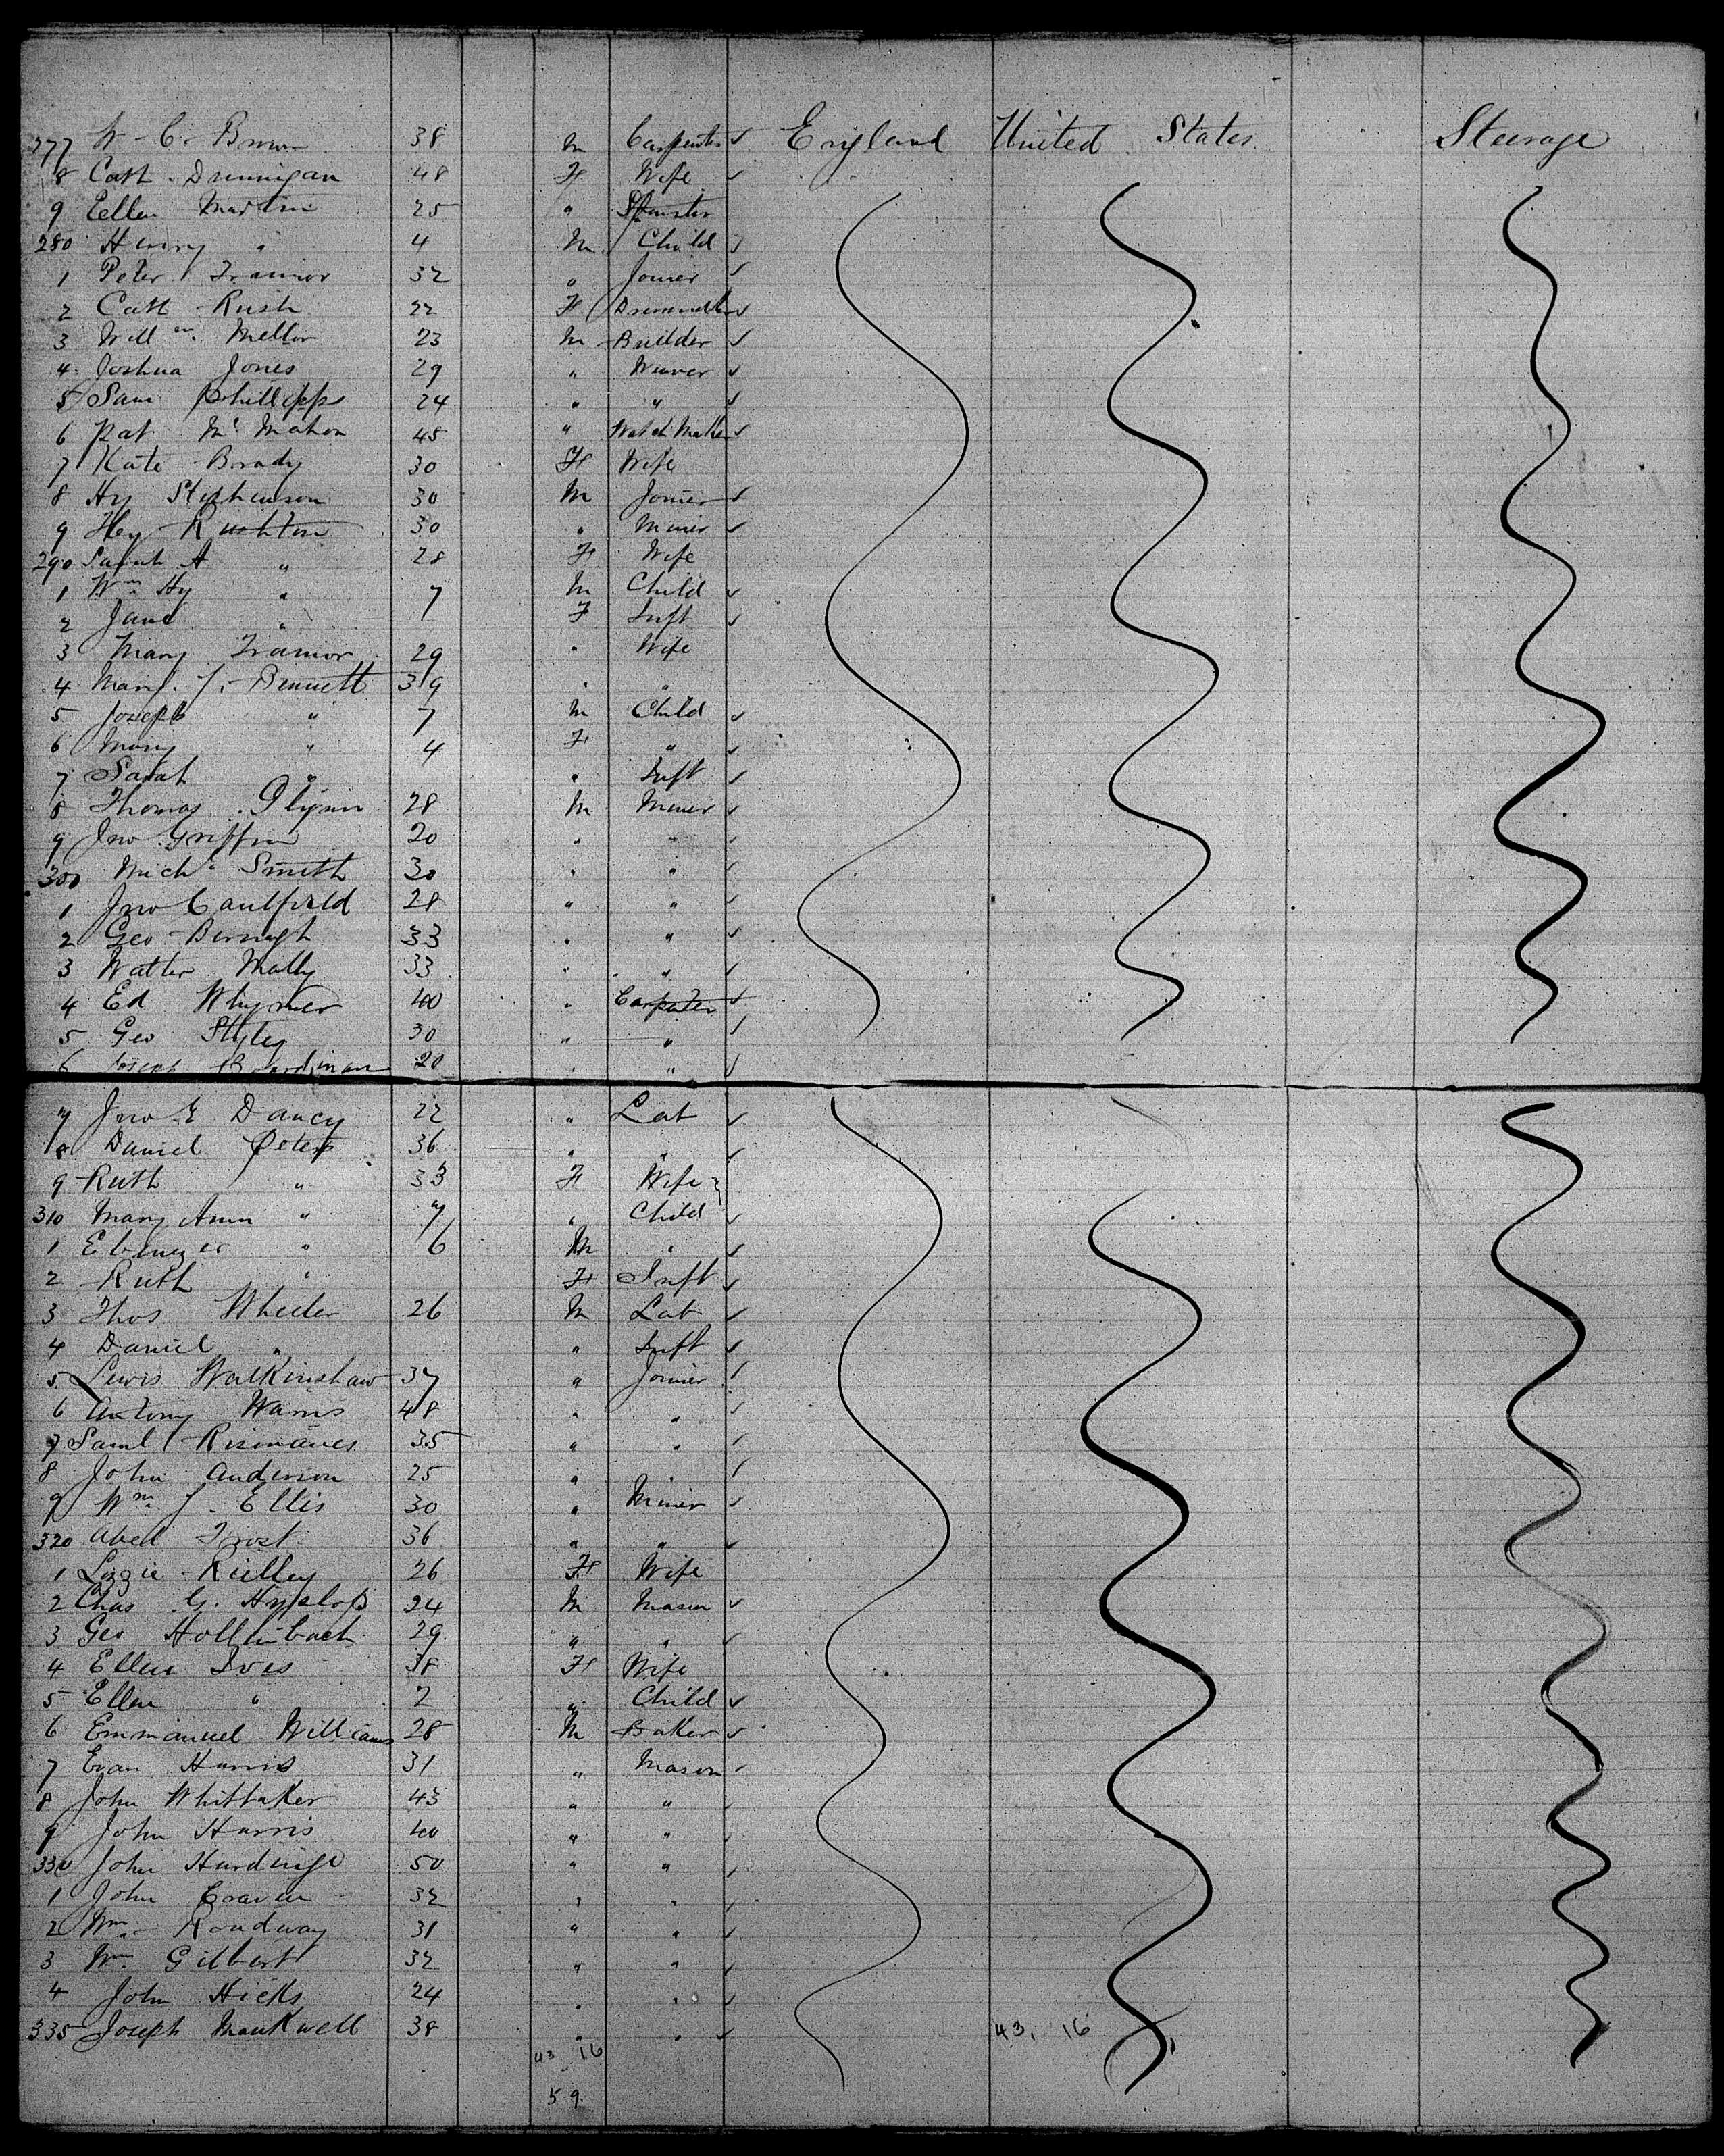 277 W. C. Brown 38 M Carpenter ✓ England United States Steerage
8 Cath. Dunnigan 48 F Wife ✓
9 Eellen Martin 25 " Spinster
280 Henry " 4 M Child ✓
1 Peter Trainor 32 " Joiner ✓
2 Cath Rush 22 F ✓
3 Willm. Mellor 23 M Builder ✓
4 Joshua Jones 29 " Weaver ✓
5 Sam Phillipps 24 " " ✓
6 Pat Mc Mahon 45 " Watch Maker ✓
7 Kate Brady 30 F Wife
8 Hy Stephenson 30 M Joiner ✓
9 Hey Rushton 30 " Miner ✓
290 Sarah A " 28 F Wife
1 Wm. Hy " 7 M Child ✓
2 Jane " F Inft ✓
3 Mary Trainor 29 " Wife
4 Mary J. Bennett 39 " "
5 Joseph " 7 M Child ✓
6 Mary " 4 F " ✓
7 Sarah " " Inft ✓
8 Thomas Glynn 28 M Miner ✓
9 Jno Griffin 20 " " ✓
300 Michl Smith 30 " " ✓
1 Jno Caulfield 28 " " ✓
2 Geo 33 " " ✓
3 Walter Mally 33 " " ✓
4 Ed Whymer 40 " Carpater ✓
5 Geo Styles 30 " " ✓
6 Joseph Boardman 20 " " ✓
7 Jno E. Dancy 22 " Lab ✓
8 Daniel Peters 36 " " ✓
9 Ruth " 33 F Wife
310 Mary Ann " 7 " Child ✓
1 Ebenezer " 6 M " ✓
2 Ruth " F Inft ✓
3 Thos Wheeler 26 M Lab ✓
4 Daniel " " Inft ✓
5 Lewis Walkinshaw 37 " Joiner ✓
6 Antony Warns 48 " " ✓
7 Saml 35 " " ✓
8 John Anderson 25 " " ✓
9 Wm. J. Ellis 30 " Miner ✓
320 Abed Frost 36 " " ✓
1 Lizzie Rielley 26 F Wife
2 Chas G. Hyslop 24 M Mason ✓
3 Geo Hollinbach 29 " " ✓
4 Ellen Ives 38 F Wife
5 Ellen " 2 " Child ✓
6 Emmanuel Williams 28 M Baker ✓
7 Evan Harris 31 " Mason ✓
8 John Whittaker 43 " " ✓
9 John Harris 40 " " ✓
330 John Hardinge 50 " " ✓
1 John Craven 32 " " ✓
2 Wm. Roadway 31 " " ✓
3 Wm. Gilbert 32 " " ✓
4 John Hicks 24 " " ✓
335 Joseph Mankwell 38 " " ✓ 43, 16
43 16
59